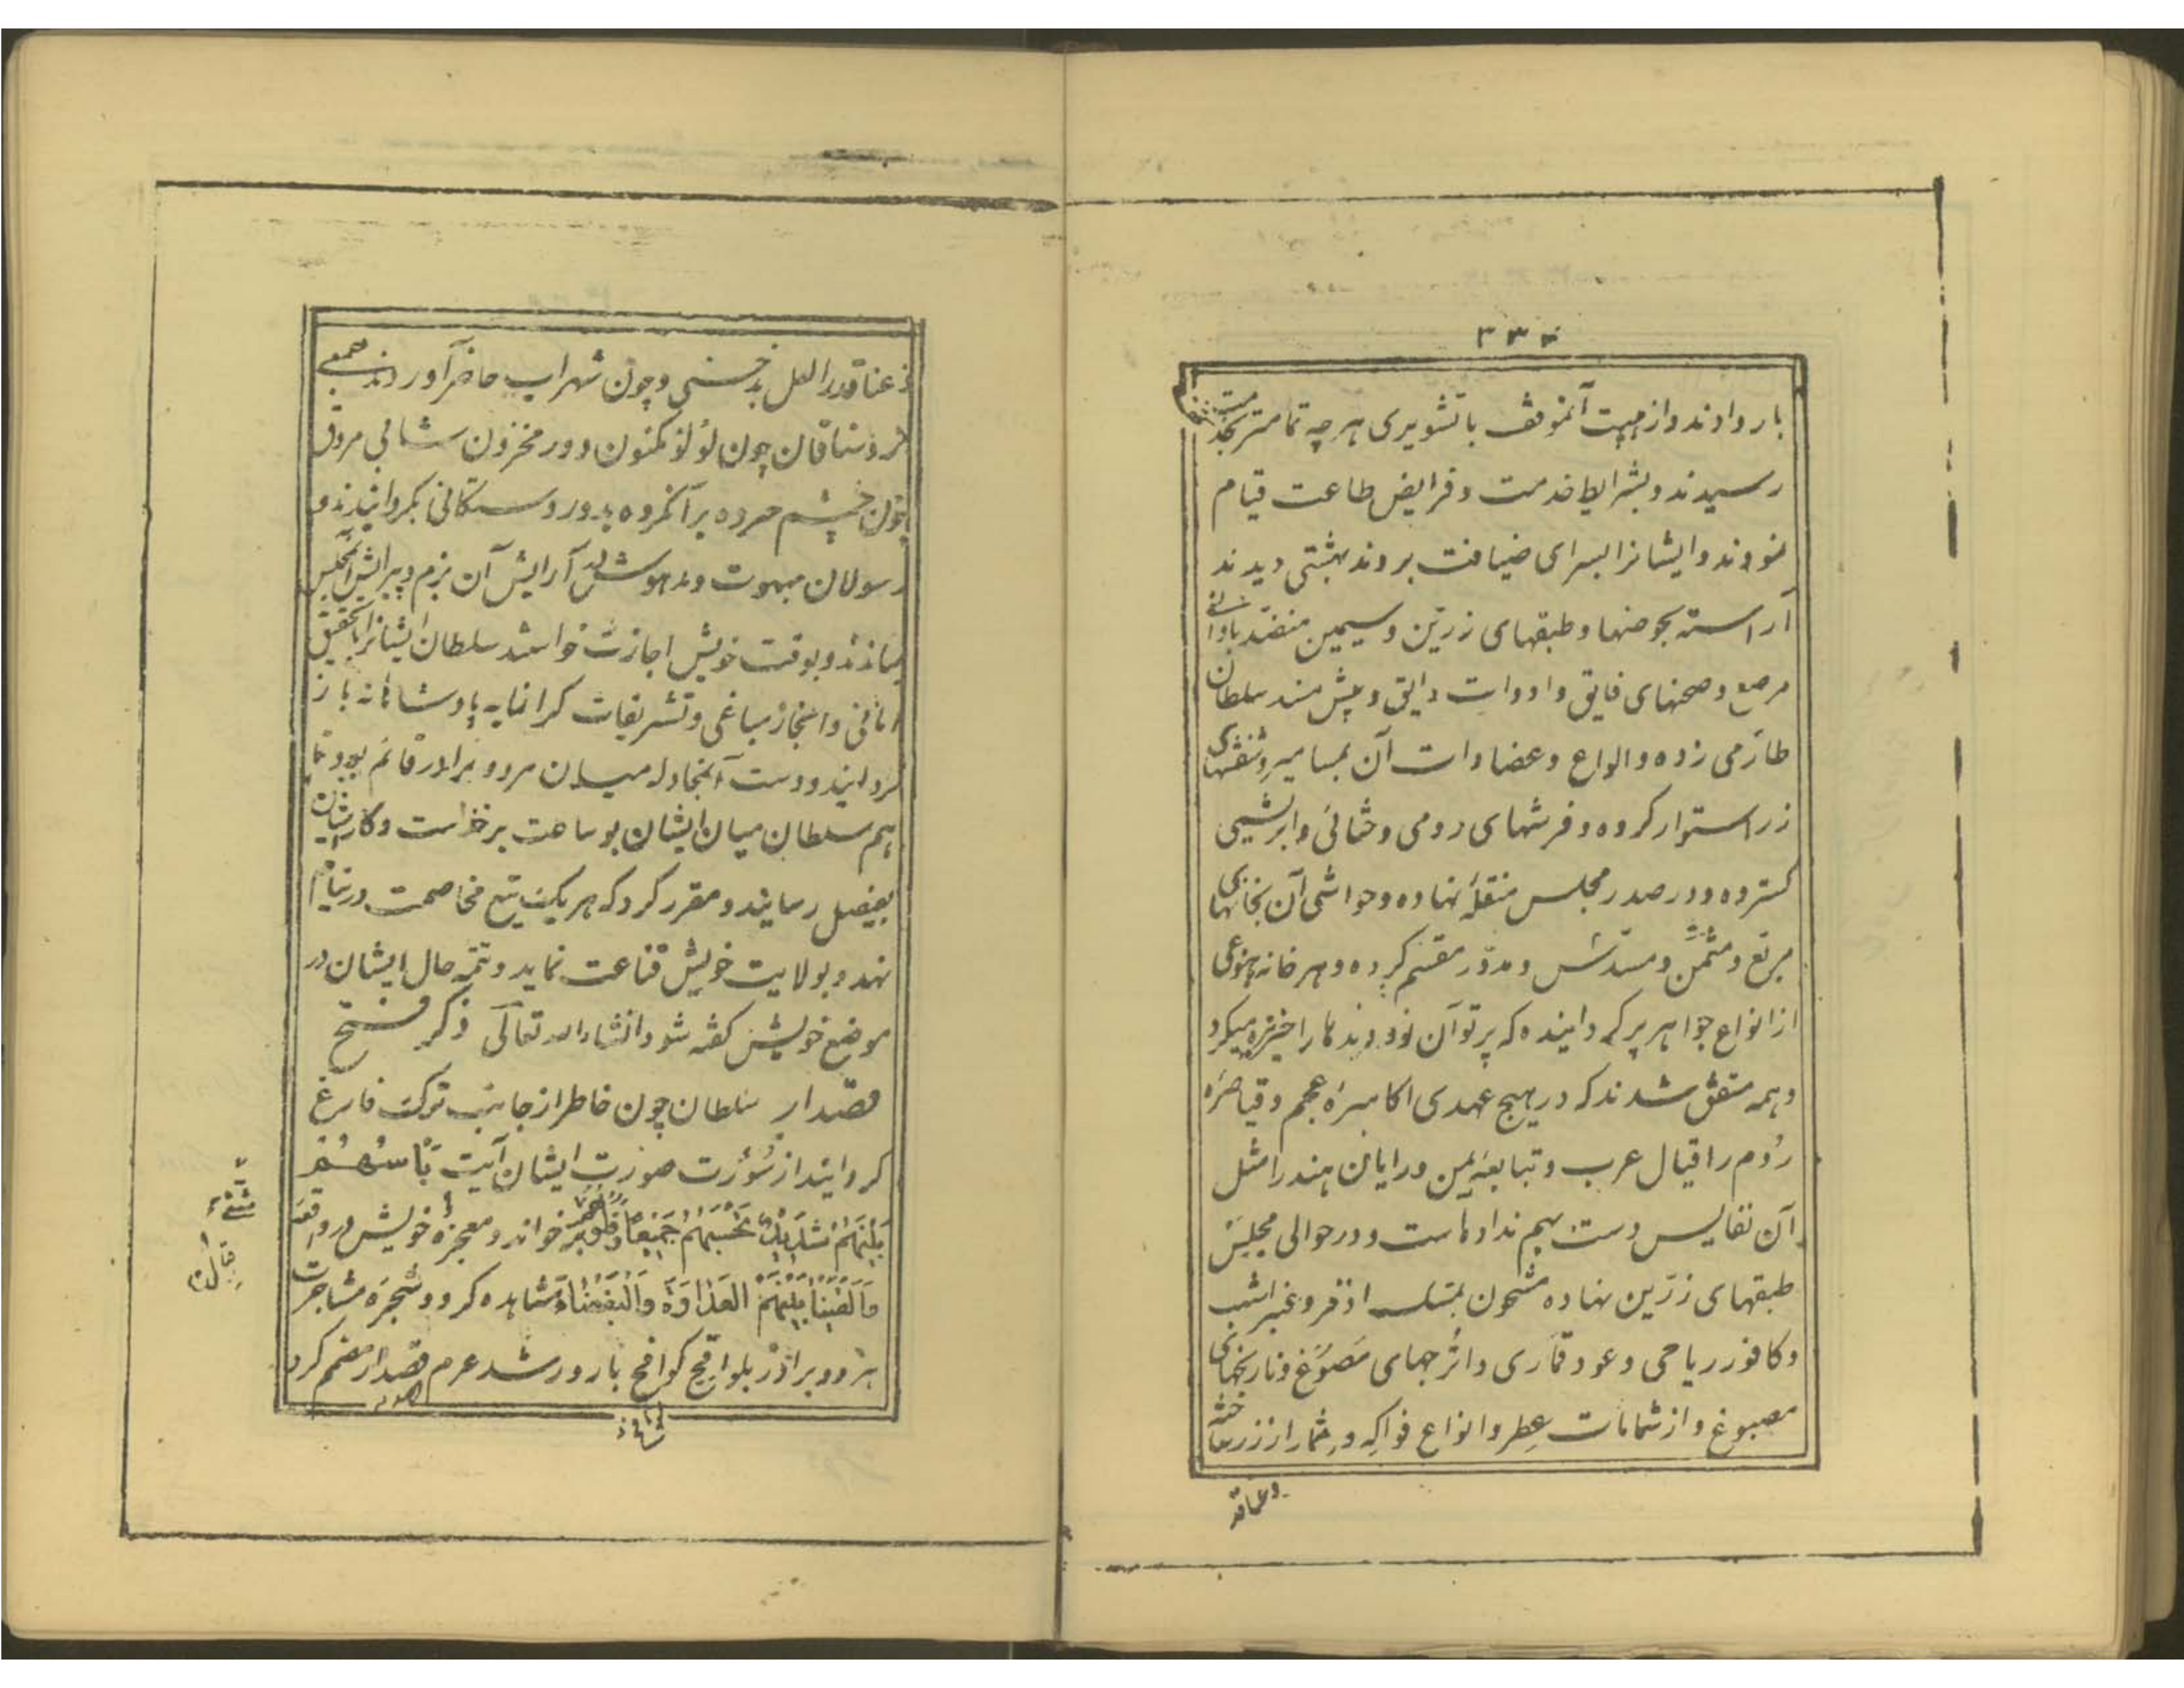 ۳۳۴
بار دادند و از هیبت آنموقف با تشویری هر چه تمامتر بخدمت
رسیدند و بشرایط خدمت و فرایض طاعت قیام
نمودند و ایشانرا بسرای ضیافت بردند بهشتی دیدند
آراسته بحوضها و طبقهای زرّین و سیمین منضّد باوانی
مرصع و صحنهای فایق و ادوات رایق و پیش مسند سلطان
طارمی زده و الواح و عضادات آن بمسامیر و شفشهای
زر استوار کرده و فرشهای رومی و خثائی و ابریشمی
گسترده و در صدر مجلس منقلهٔ نهاده و حواشی آن بخانهای
مربّع و مثمّن و مسدّس و مدوّر مقسّم کرده و هر خانه بنوعی
از انواع جواهر پر گردانیده که پرتو آن دیدها را خیره میکرد
و همه متفق شدند که در هیچ عهدی اکاسرهٔ عجم و قیاصرهٔ
رُوم را قیال عرب و تبابعهٔ یمن و رایان هند را مثل
آن نفایس دست بهم نداده است و در حوالی مجلس
طبقهای زرّین نهاده مشحون بمسک اذفر و عنبر اشهب
و کافور ریاحی و عود قماری و اترجهای مَصوُغ و نارنجهای
مصبوغ و از شمامات عِطر و انواع فواکِه و ثِمار از زر ساخته
وعناقد
وعناقد از لعل بدخشی و چون شهراب حاضر آوردند جمعی
از وشاقان چون لؤلؤ مکنون و در مخزون شرابی مروّق
چون چشم خروه بر آنگروه بدور دوستگانی بگردانیدند و
رسولان مبهوت و مدهوش در آرایش آن بزم و پیرایش آنمجلس
بماندند و بوقت خویش اجازت خواستند سلطان ایشانرا بتحقیق
امانی و انجاز مباغی و تشریفات گرانمایه پادشاهانه باز
گردانید و دست آنمجادله میان هر دو برادر قائم بود تا
هم سلطان میان ایشان بوساطت برخاست و کار ایشان
بفیصل رسانید و مقرر کرد که هر یک تیغ مخاصمت در نیام
نهد و بولایت خویش قناعت نماید و تتمه حال ایشان در
موضع خویش گفته شود انشاءالله تعالی ذکر فتح
قصدار سلطان چون خاطر از جانب ترک فارغ
گردانید از سُورَت صورت ایشان آیت بَاْسُهُمْ
بَیْنَهُمْ شَدِیْدٌ تَحْسَبُهُمْ جَمِیْعًا وَ قُلُوْبُهُمْ خواند و معجزهٔ خویش در واقعه
وَاَلْقَیْنَا بَیْنَهُمُ الْعَدَاوَةَ وَالْبَغْضَاءَ مشاهده کرد و شجرهٔ مشاجرت
هر دو برادر بلواقح کوافح بارور شد عزم قصدار مصمم کرد
شتّی